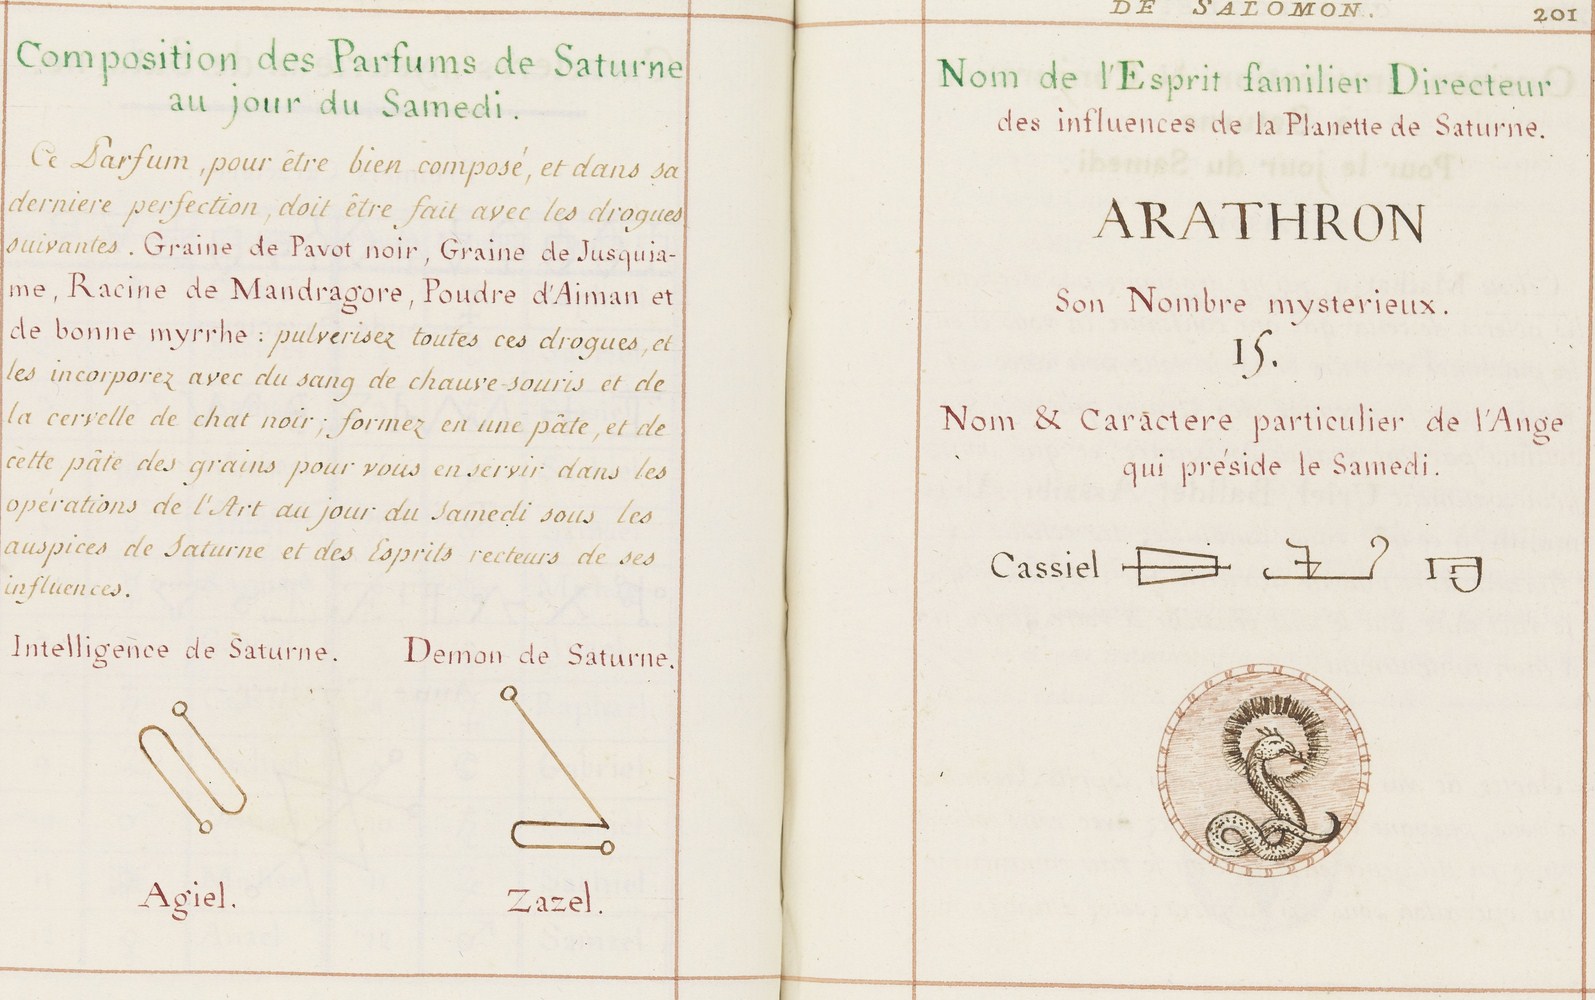 Composition des Parfums de Saturne
au jour du Samedi.
Ce Parfum, pour être bien composé, et dans sa
derniere perfection, doit être fait avec les drogues
suivantes. Graine de Pavot noir, Graine de Jusquia-
me, Racine de Mandragore, Poudre d'Aiman et
de bonne myrrhe : pulverisez toutes ces drogues, et
les incorporez avec du sang de chauve-souris et de
la cervelle de chat noir; formez en une pâte, et de
cette pâte des grains pour vous en servir dans les
opérations de l'Art au jour du Samedi sous les
auspices de Saturne et des Esprits recteurs de ses
influences.
Intelligence de Saturne. Demon de Saturne.
Agiel. Zazel.
DE SALOMON. 201
Nom de l'Esprit familier Directeur
des influences de la Planette de Saturne.
ARATHRON
Son Nombre mysterieux.
15.
Nom & Caractere particulier de l'Ange
qui préside le Samedi.
Cassiel